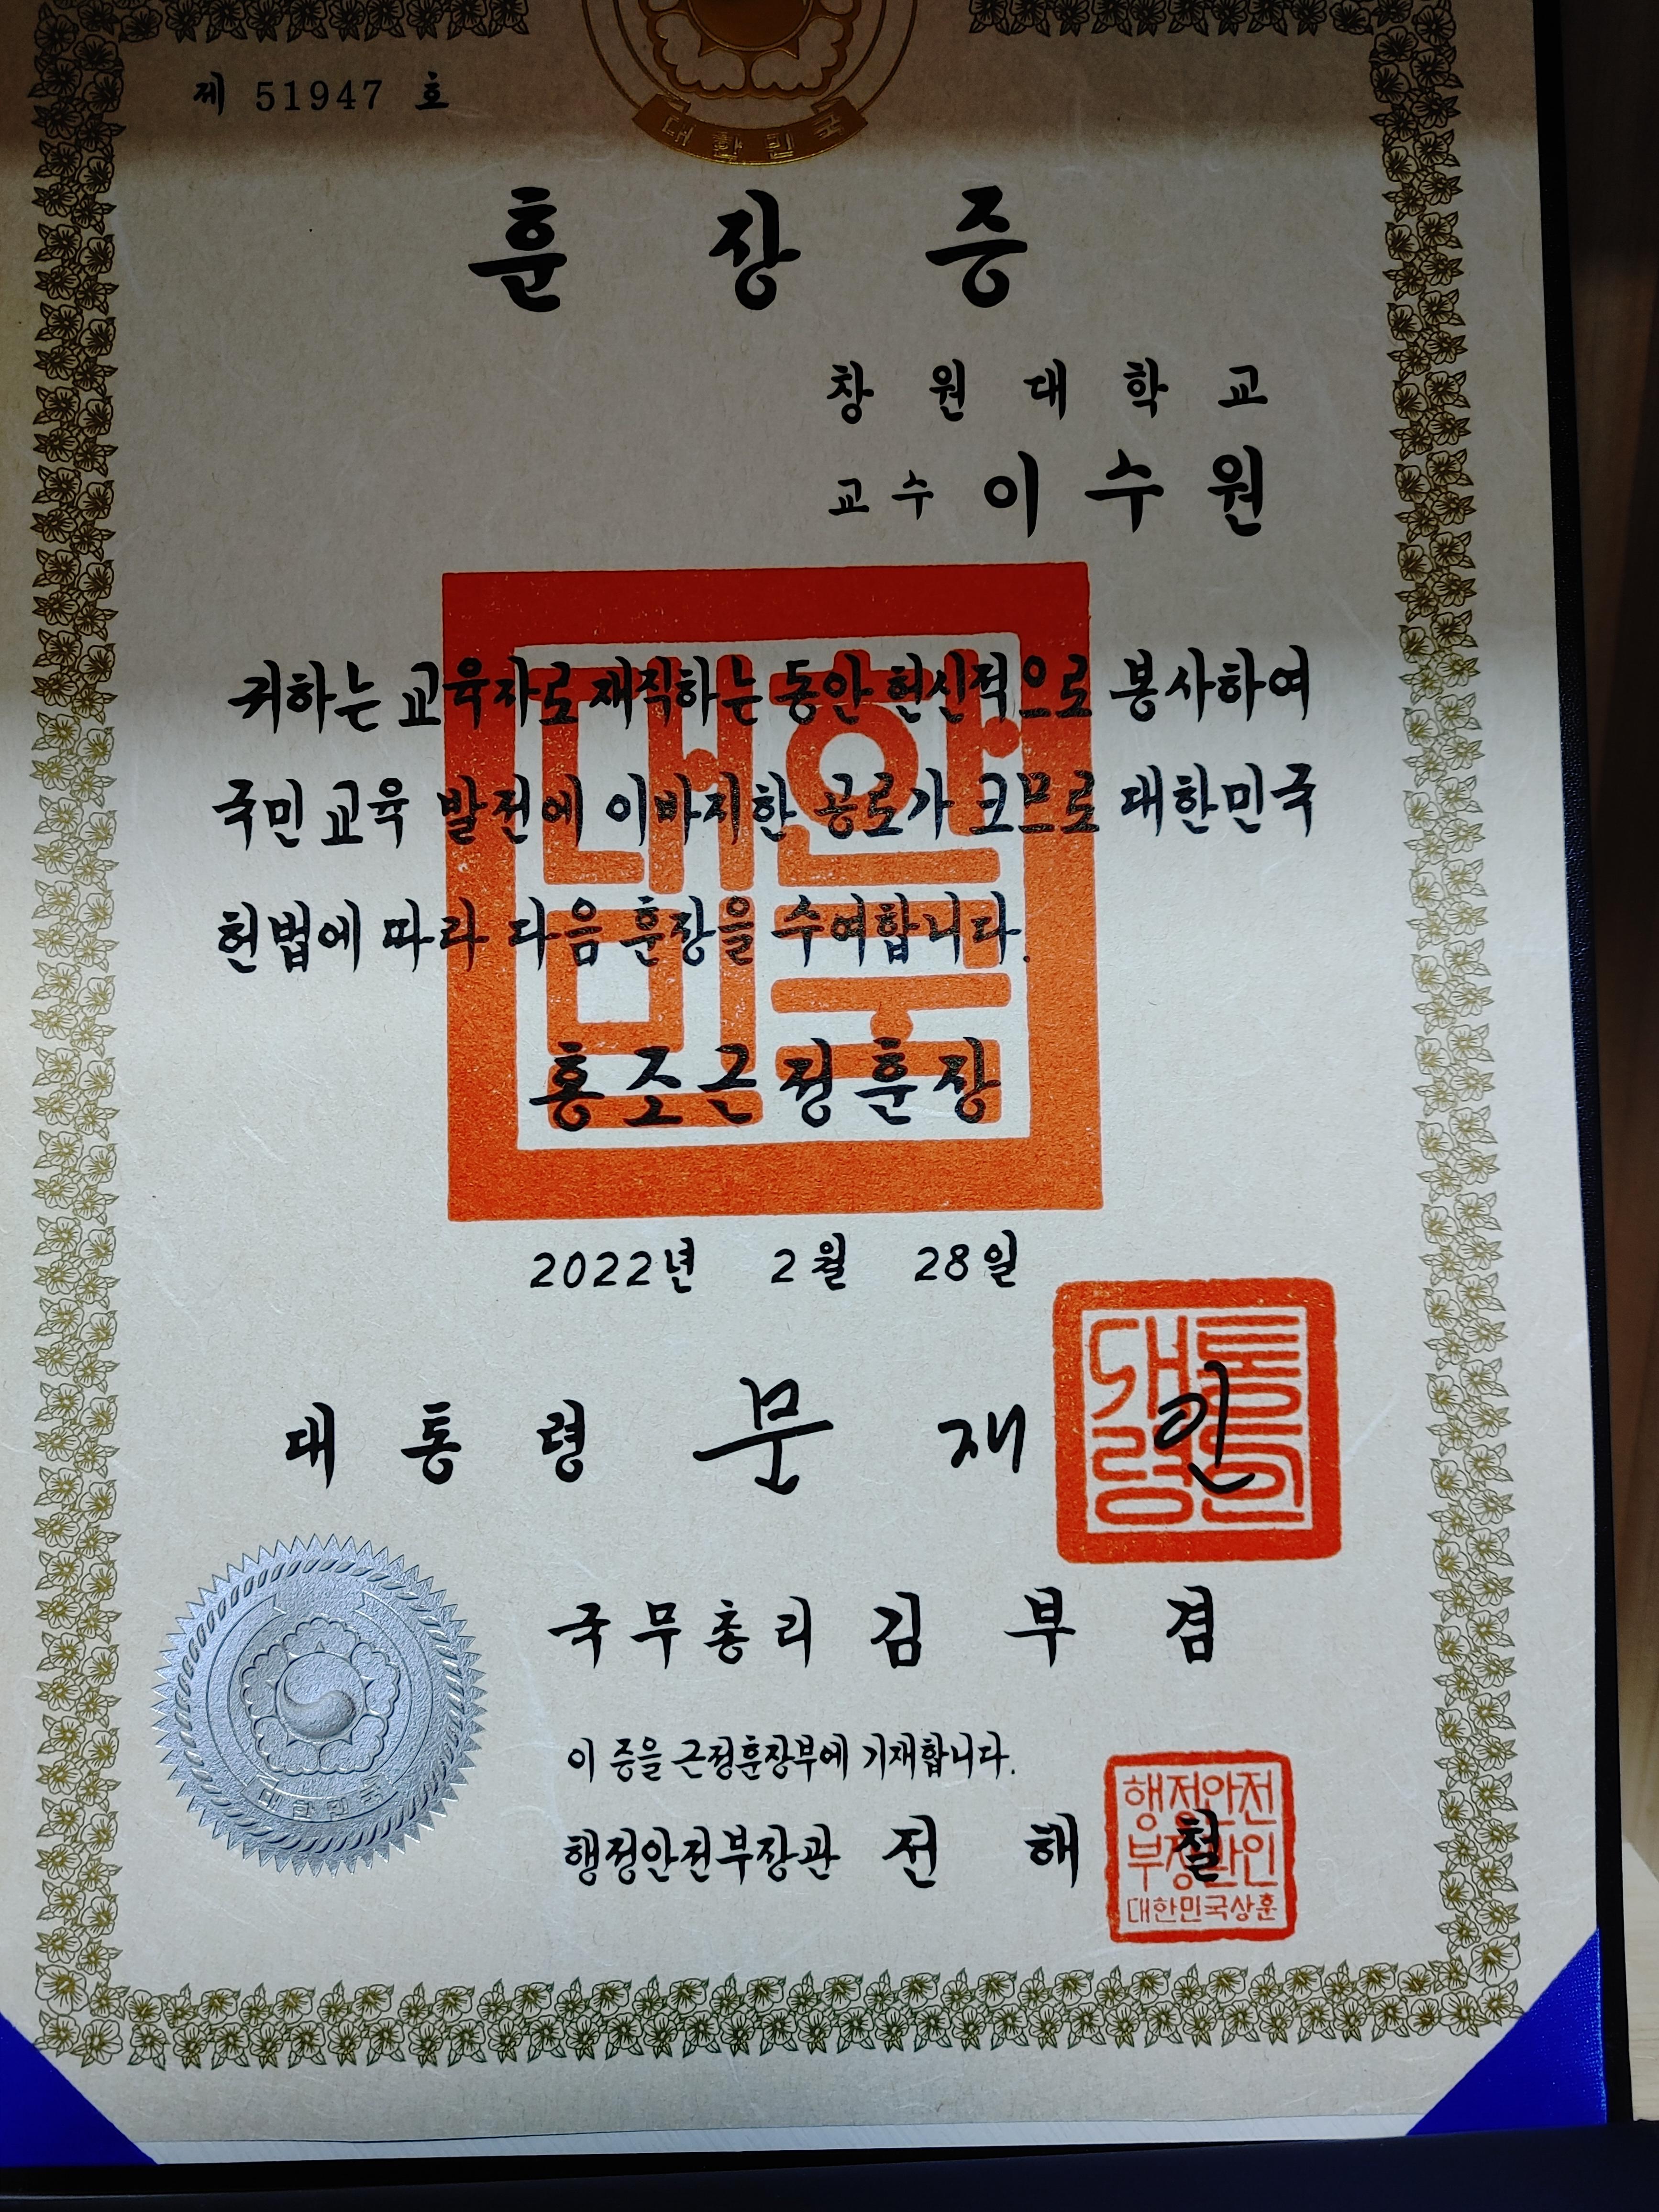 제 51947 호
대한민국
훈장증
창원대학교
교수 이수원
귀하는 교육자로 재직하는 동안 헌신적으로 봉사하여
국민교육 발전에 이바지한 공로가 크므로 대한민국
헌법에 따라 다음 훈장을 수여합니다.
홍조근정훈장
대한
민국
2022년 2월 28일
대통령 문재인
대통
령인
국무총리 김부겸
이 증을 근정훈장부에 기재합니다.
행정안전부장관 전해철
행정안전
부장관인
대한민국상훈
대한민국